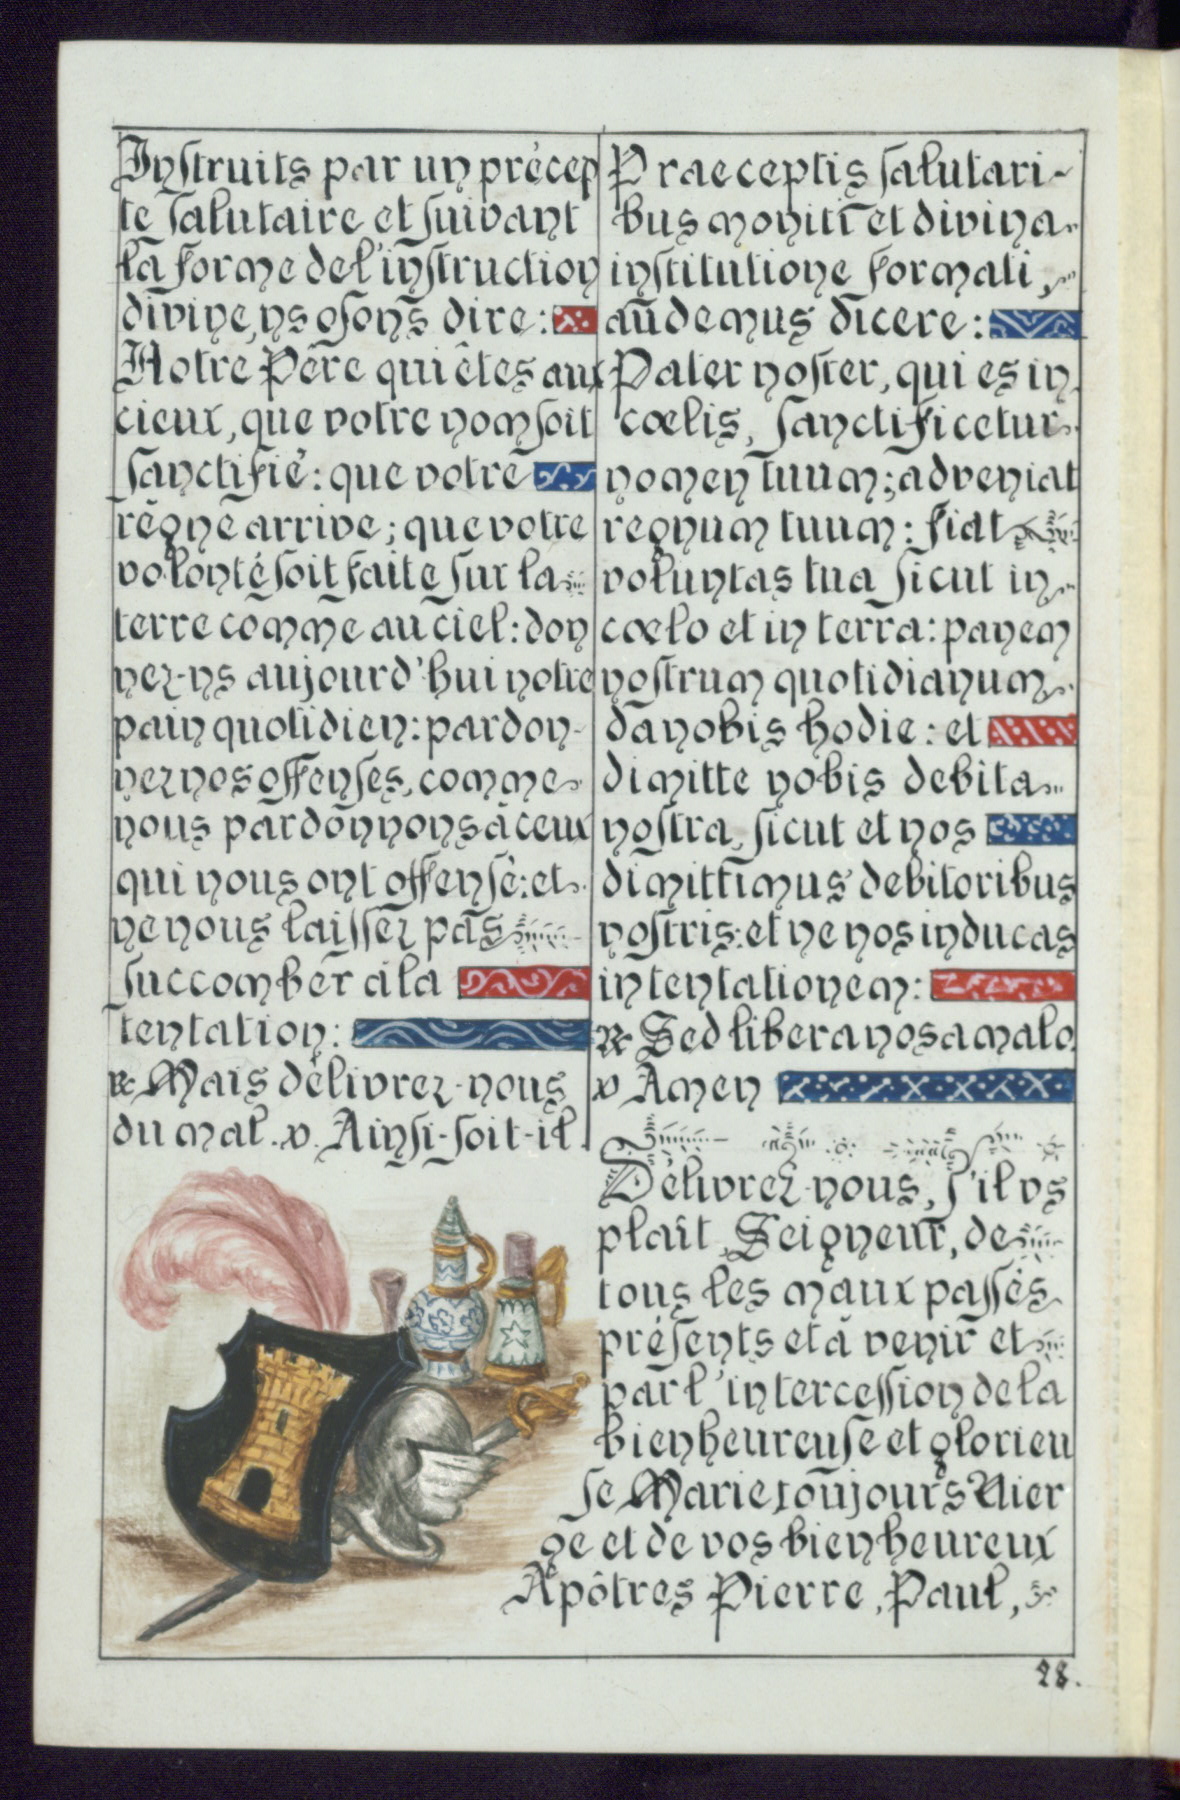 Instruits par un précep
te salutaire et suivant
la forme de l'instruction
divine, ns osons dire:
Notre Père qui êtes aux
cieux, que votre nom soit
sanctifié: que votre
règne arrive; que votre
volonté soit faite sur la
terre comme au ciel: don
nez-ns aujourd'hui notre
pain quotidien: pardon-
nez nos offenses, comme
nous pardonnons à ceux
qui nous ont offensé: et
ne nous laissez pas
succomber à la
tentation:
R Mais délivrez-nous
du mal. v. Ainsi-soit-il.
Praeceptis salutari-
bus moniti et divina
institutione formati,
audemus dicere:
Pater noster, qui es in
cœlis, sanctificetur
nomen tuum; adveniat
regnum tuum: fiat
voluntas tua sicut in
cœlo et in terra: panem
nostrum quotidianum
da nobis hodie: et
dimitte nobis debita
nostra, sicut et nos
dimittimus debitoribus
nostris: et ne nos inducas
in tentationem:
R Sed libera nos a malo.
v Amen
Délivrez-nous, s'il vs
plaît, Seigneur, de
tous les maux passés
présents et à venir et
par l'intercession de la
bienheureuse et glorieu
se Marie toujours Vier
ge et de vos bienheureux
Apôtres Pierre, Paul,
28.